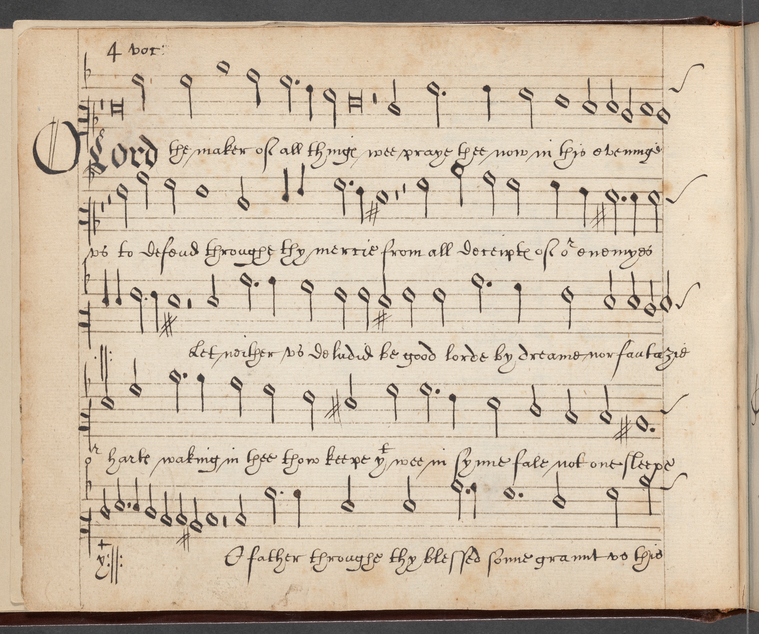 4 voc:
O Lord the maker of all thinge wee praye thee now in this eveninge
vs to defend throughe thy mercie from all deceipte of or enemyes
Let neither vs deludid be good lorde by dreame nor fantazie
or harte waking in thee thow keepe yt wee in synne fale not one sleepe
O father throughe thy blessed sonne grannt vs this